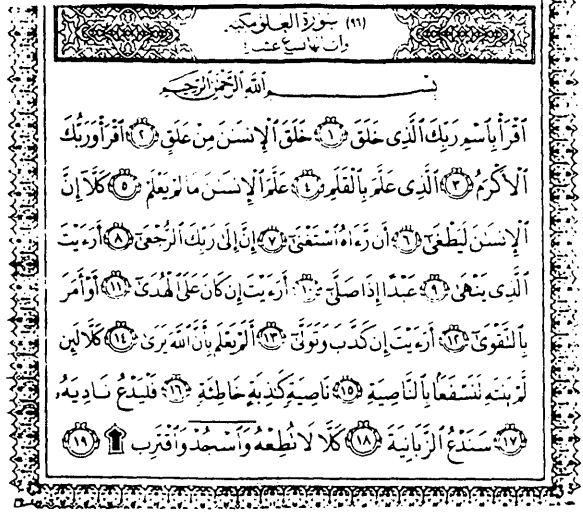 (٩٦) سورة العلق مكية
وآياتها تسع عشرة
بِسْمِ اللَّهِ الرَّحْمَٰنِ الرَّحِيمِ
ٱقْرَأْ بِٱسْمِ رَبِّكَ ٱلَّذِى خَلَقَ ١ خَلَقَ ٱلْإِنسَٰنَ مِنْ عَلَقٍ ٢ ٱقْرَأْ وَرَبُّكَ
ٱلْأَكْرَمُ ٣ ٱلَّذِى عَلَّمَ بِٱلْقَلَمِ ٤ عَلَّمَ ٱلْإِنسَٰنَ مَا لَمْ يَعْلَمْ ٥ كَلَّآ إِنَّ
ٱلْإِنسَٰنَ لَيَطْغَىٰٓ ٦ أَن رَّءَاهُ ٱسْتَغْنَىٰٓ ٧ إِنَّ إِلَىٰ رَبِّكَ ٱلرُّجْعَىٰٓ ٨ أَرَءَيْتَ
ٱلَّذِى يَنْهَىٰ ٩ عَبْدًا إِذَا صَلَّىٰٓ ١٠ أَرَءَيْتَ إِن كَانَ عَلَى ٱلْهُدَىٰٓ ١١ أَوْ أَمَرَ
بِٱلتَّقْوَىٰٓ ١٢ أَرَءَيْتَ إِن كَذَّبَ وَتَوَلَّىٰٓ ١٣ أَلَمْ يَعْلَم بِأَنَّ ٱللَّهَ يَرَىٰ ١٤ كَلَّا لَئِن
لَّمْ يَنتَهِ لَنَسْفَعًۢا بِٱلنَّاصِيَةِ ١٥ نَاصِيَةٍ كَٰذِبَةٍ خَاطِئَةٍ ١٦ فَلْيَدْعُ نَادِيَهُۥ
١٧ سَنَدْعُ ٱلزَّبَانِيَةَ ١٨ كَلَّا لَا تُطِعْهُ وَٱسْجُدْ وَٱقْتَرِب ۩ ١٩